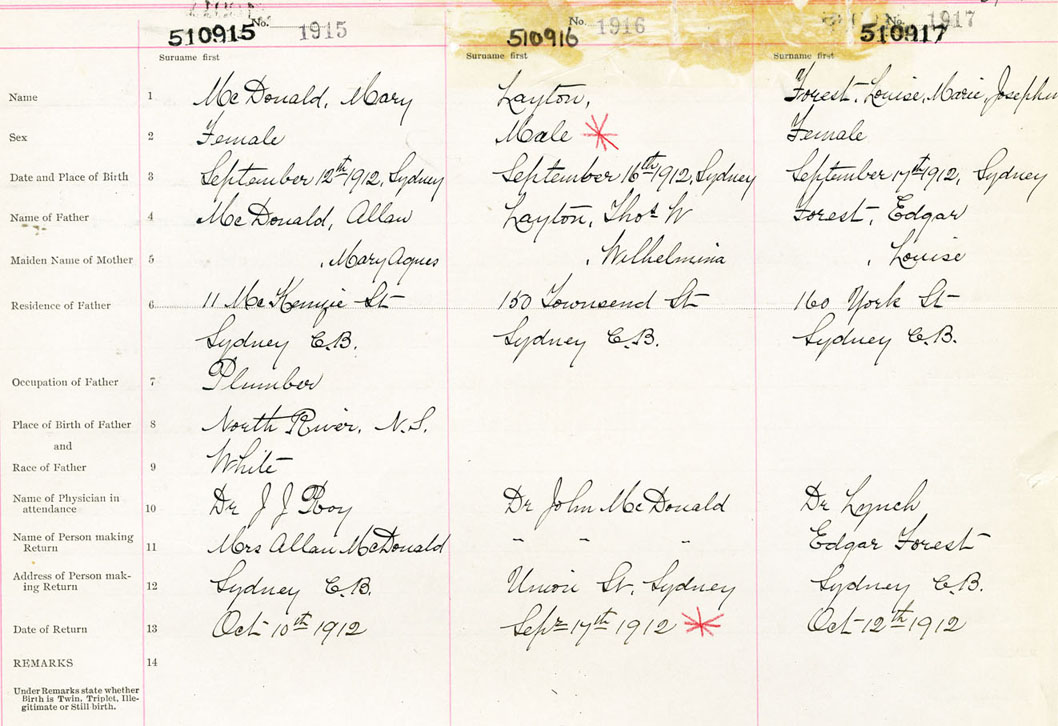 No. No. No.
510915 1915 510916 1916 510917 1917
Surname first Surname first Surname first
Name 1 McDonald, Mary Layton, Forest, Louise, Marie, Joseph
Sex 2 Female Male Female
Date and Place of Birth 3 September 12th 1912, Sydney September 16th 1912, Sydney September 17th 1912, Sydney
Name of Father 4 McDonald, Allan Layton, Thos W Forest, Edgar
Maiden Name of Mother 5 , Mary Agnes , Wilhelmina , Louise
Residence of Father 6 11 McKenzie St 150 Townsend St 160 York St
Sydney C.B. Sydney C.B. Sydney C.B.
Occupation of Father 7 Plumber
Place of Birth of Father 8 North River, N.S.
and
Race of Father 9 White
Name of Physician in
attendance 10 Dr J J Roy Dr John McDonald Dr Lynch
Name of Person making
Return 11 Mrs Allan McDonald " " " Edgar Forest
Address of Person mak-
ing Return 12 Sydney C.B. Union St, Sydney Sydney C.B.
Date of Return 13 Oct 10th 1912 Sept 17th 1912 Oct 12th 1912
REMARKS 14
Under Remarks state whether
Birth is Twin, Triplet, Ille-
gitimate or Still birth.